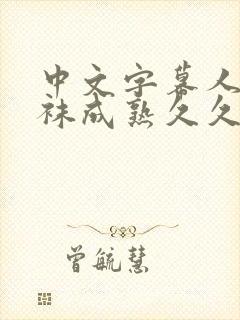 中文字幕人
袜成熟久久
曾毓慧